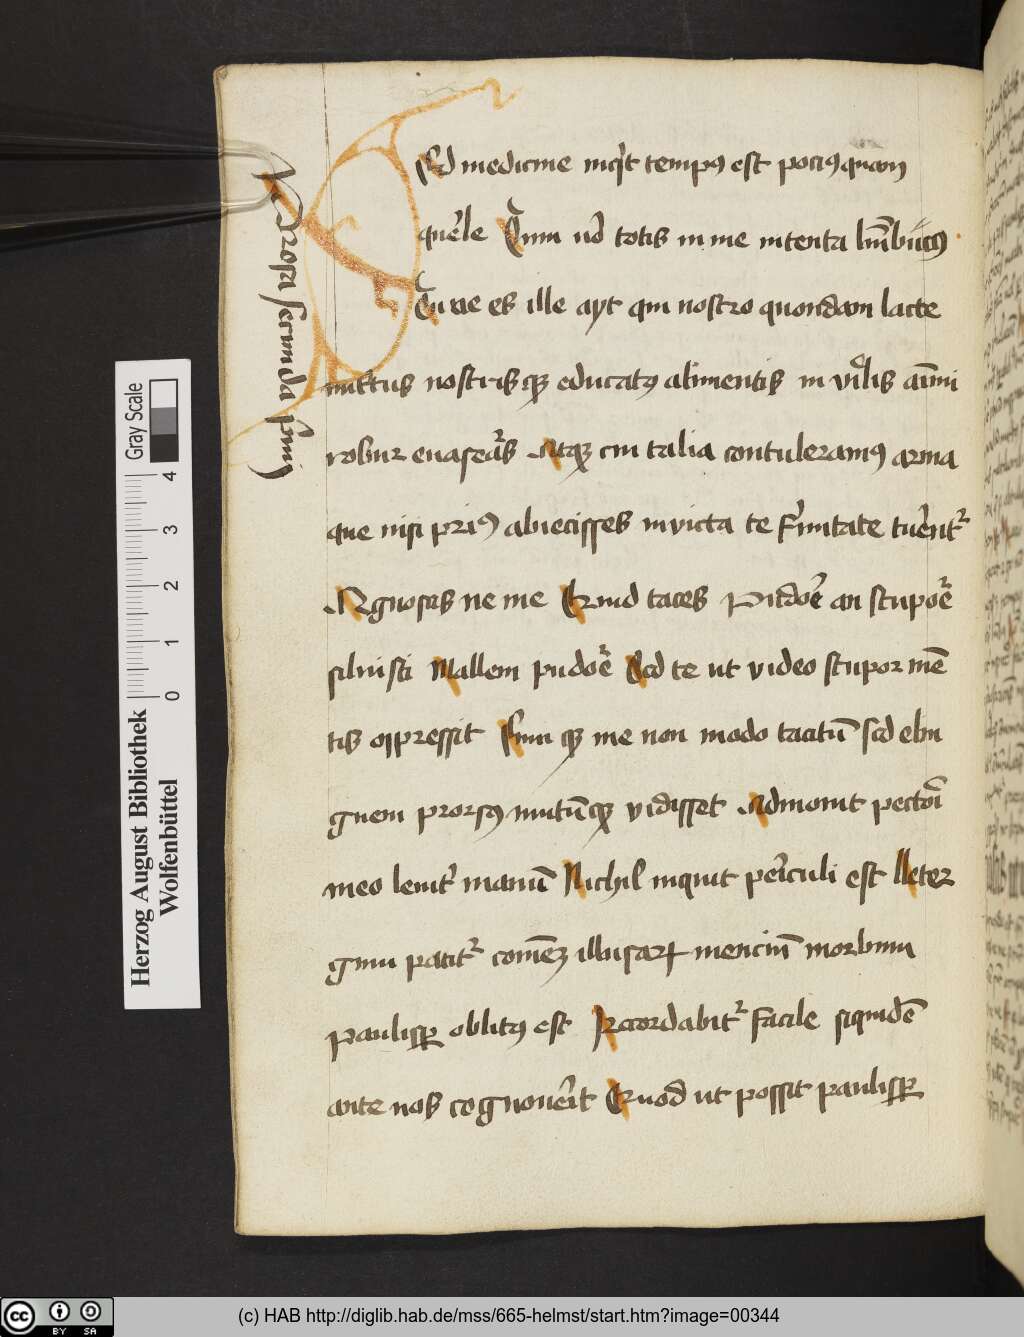 Prosa secunda primi
Sed medicine inq̈t tempꝰ est pociꝰ quam
querͥle Tum ůo totis in me intenta lumībus
Tu ne es ille ayt qui nostro quondam lacte
nutritus nostris qꝫ educatꝰ alimentis in virͥlis aīmi
robur euaseraͣs Atqꝫ cui talia contuleramꝰ arma
que nisi priꝰ abiecisses inuicta te firͥmitate tuerēt᷑
Agnoscis ne me Quid taces Pudoē an stupoē
siluisti Mallem pudoē Sed te ut video stupor mē
tis oppressit Cum qꝫ me non modo tacitū sed elin
guem prorsꝰ mutūqꝫ vidisset Admouit pectoī
meo leuitͥ manū Nichil inquit perͥculi est lleter
giam patit᷑ comēꝫ illusarꝝ menciū morbum
paulispꝑ oblitꝰ est Recordabit᷑ facile siquidē
ante nos cognouerͥit Quod ut possit paulispꝑ
Herzog August Bibliothek
Wolfenbüttel
0 1 2 3 4
Gray Scale
CC BY SA
(c) HAB http://diglib.hab.de/mss/665-helmst/start.htm?image=00344